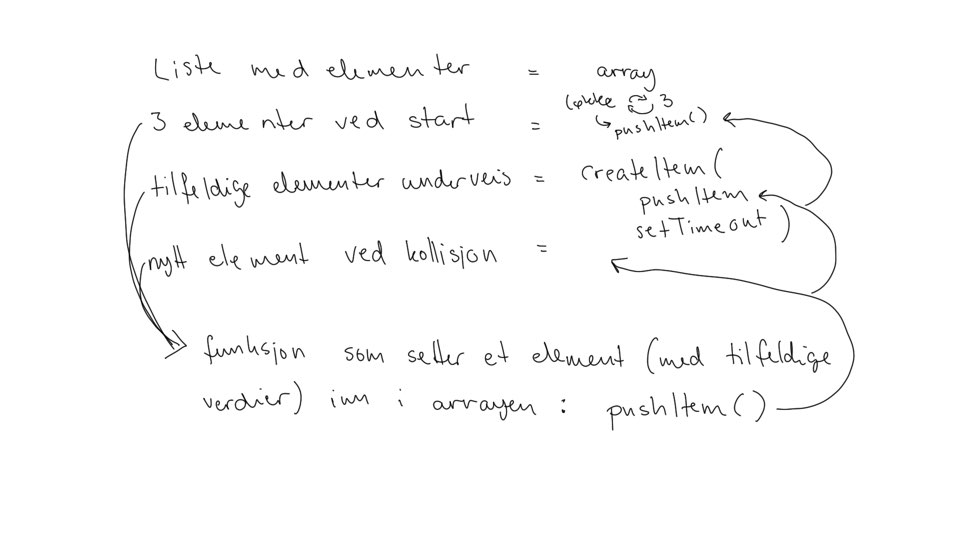 Liste med elementer = array
løkke 3
3 elementer ved start = pushItem()
tilfeldige elementer underveis = createItem(
pushItem
setTimeout)
nytt element ved kollisjon =
funksjon som setter et element (med tilfeldige
verdier) inn i arrayen : pushItem()